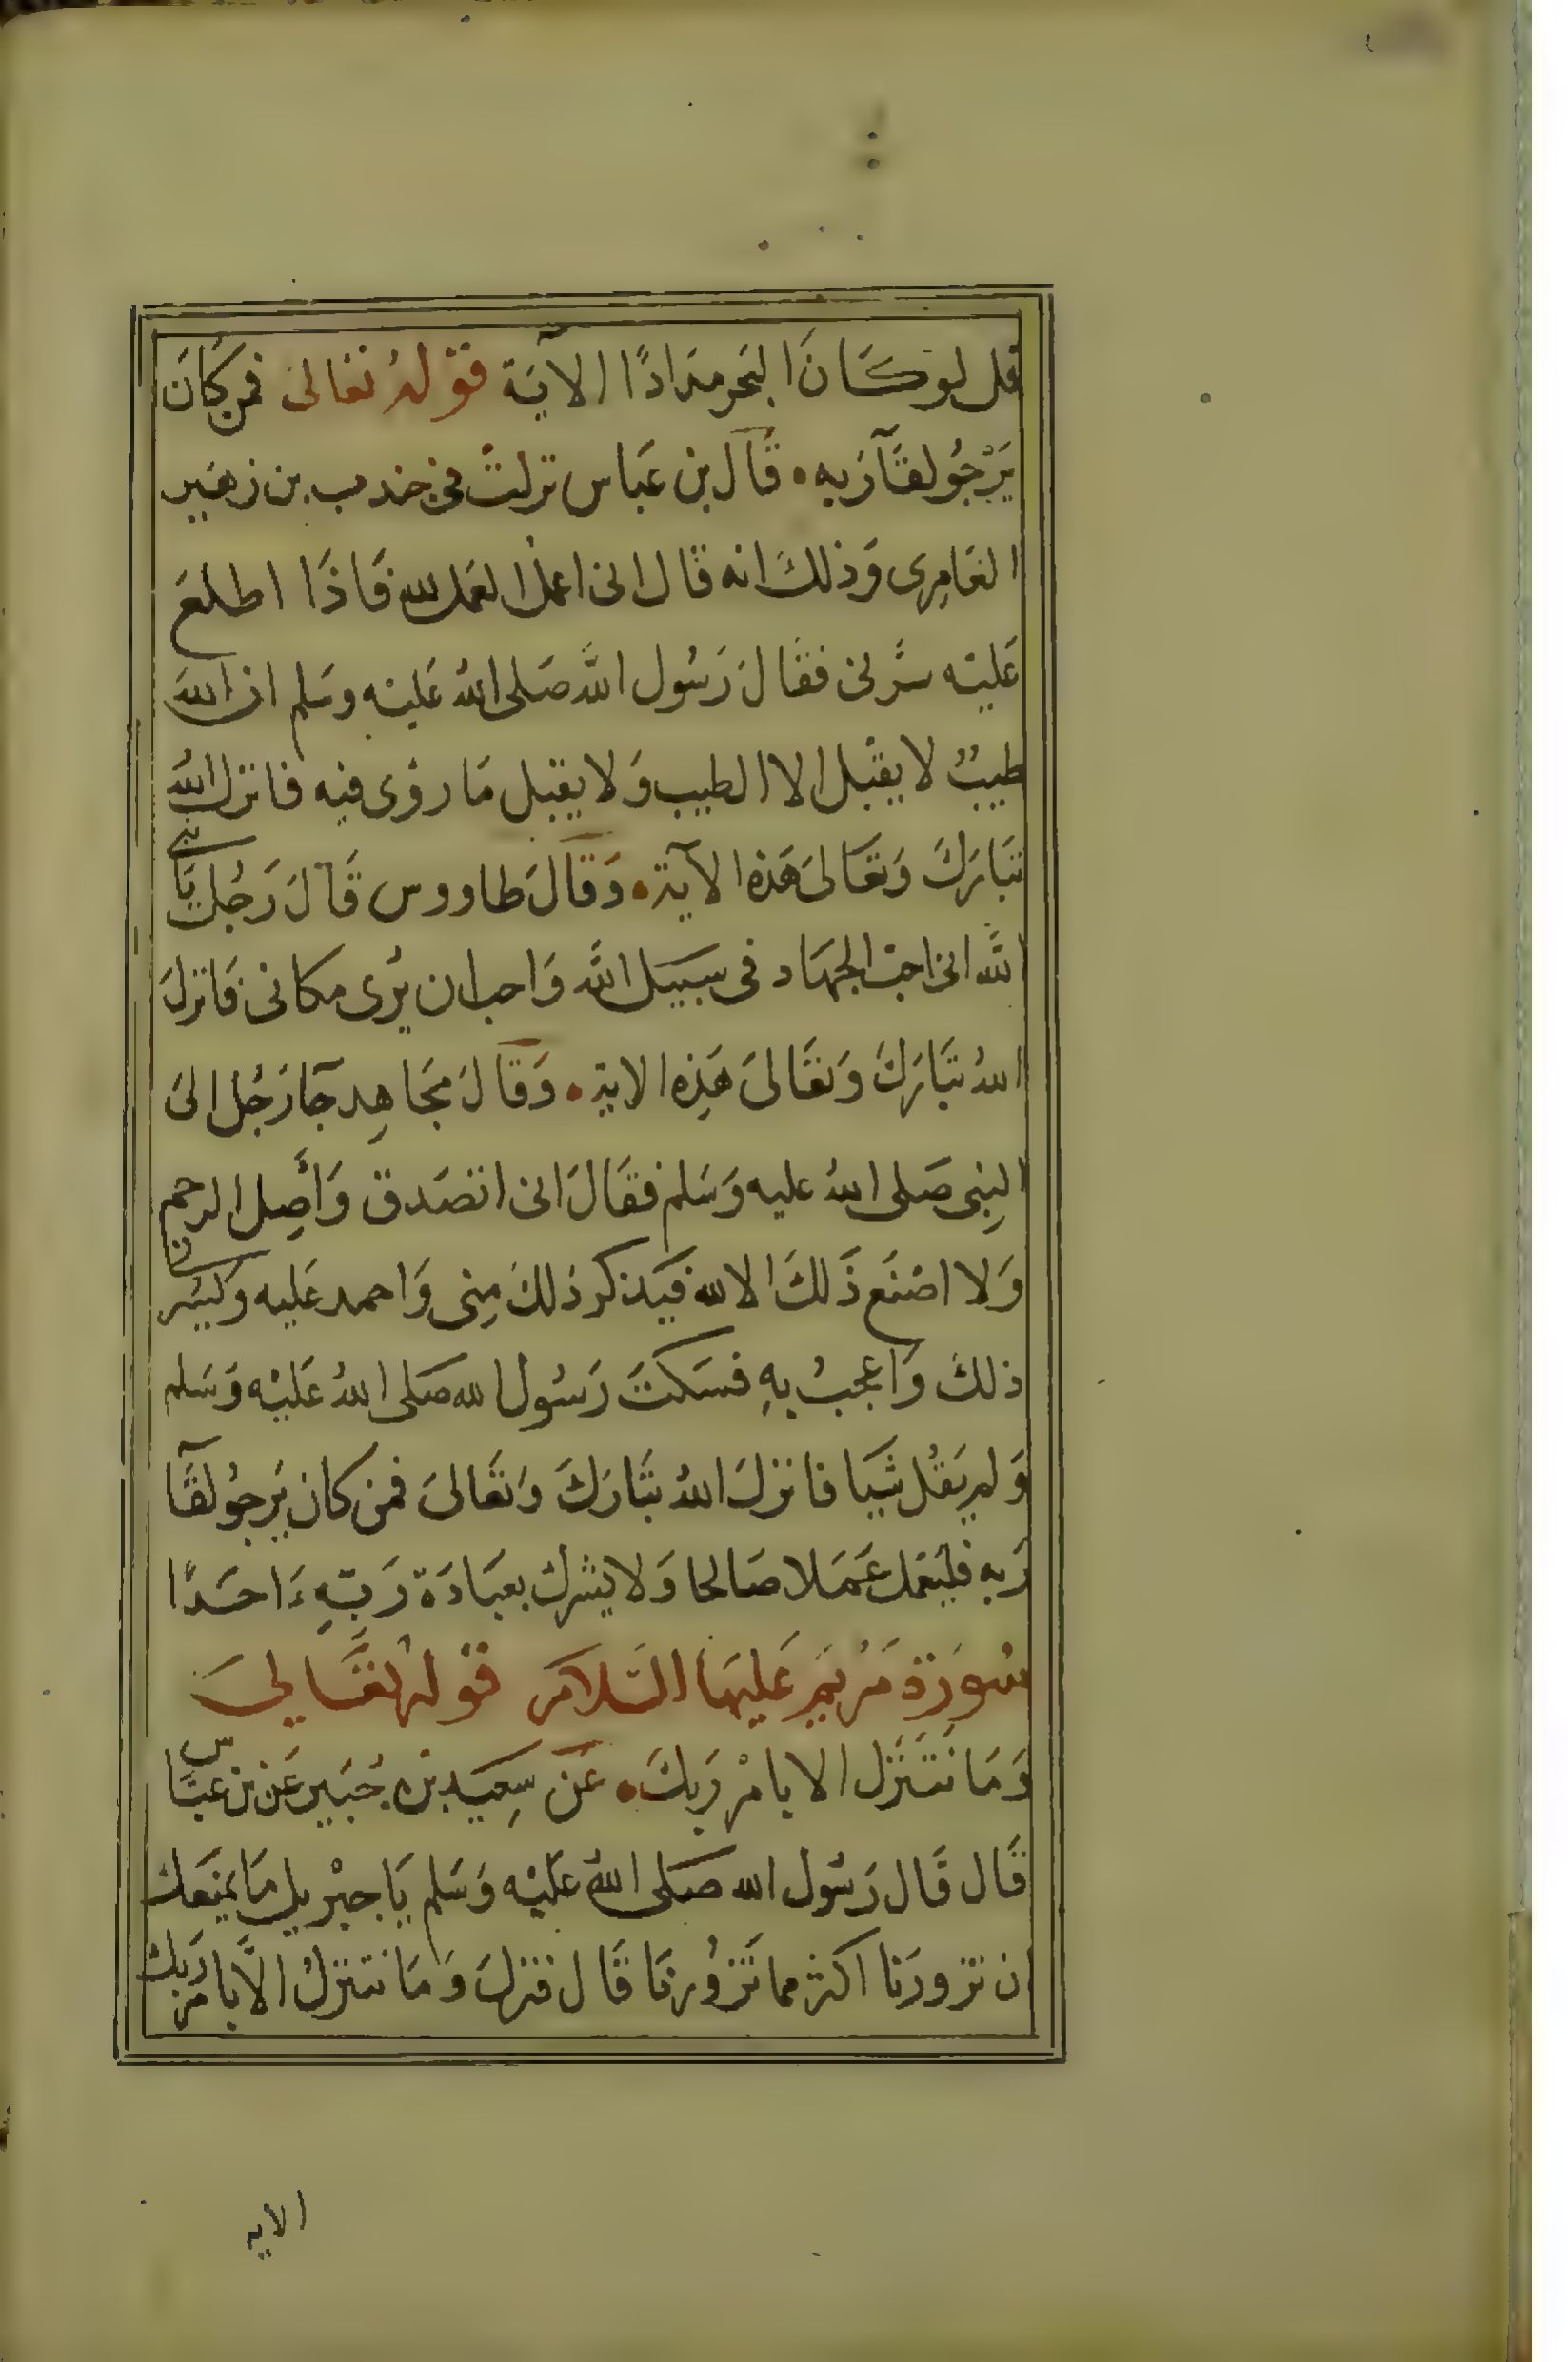 قل لو كَانَ البَحر مدَادًا الآية قوله تعَالى فمن كَانَ
يَرْجُو لقآ رَبه قَالَ بن عَباس نزلتْ في جندب بن زهَير
العَامِرِى وَذلكَ انه قال انى اعمل العَمل لله فَاذَا اطلعَ
عَليْه سَرنى فقَالَ رَسُول اللَّه صَلى اللهُ عَليْه وسَلم ان اللهَ
طيبٌ لا يقْبل الا الطيب وَلا يقبل مَا روُى فيه فانزل اللهُ
تبَارَكَ وَتعَالىَ هَذه الآية وَقَالَ طاووس قَالَ رَجُل يَا نبي
اللَّه انى احب الجهَاد فى سبيَل اللَّه وَاحب ان يُرى مكانى فَانزلَ
اللهُ تبَارَكَ وَتعَالىَ هَذِه الاية وَقَالَ مجَاهِد جآ رَجُل الىَ
النِبى صَلى اللهُ عليه وَسَلم فقَالَ انى اتصَدق وَأَصِل الرحم
وَلا اصْنَع ذَلكَ الا لله فيَذكر ذلكَ مِنى وَاحمد عَليه وَيسُرنى
ذلكَ وَاعجبُ بهِ فسَكتَ رَسُول الله صَلى اللهُ عَليْه وَسَلم
وَلم يَقُل شيَا فانزلَ اللهُ تبَارَكَ وَتعَالىَ فمن كان يَرجوُ لقآ
رَبه فليَعمل عَمَلا صَالحا وَلا يشرك بعبَادَة رَبِّهِ ءَاحَدًا
سُورَة مَرْيَم عَليهَا السَّلام قوله تعَالىَ
وَمَا نتَنَزل الا بامْر رَبكَ عَن سِعيَد بن جُبَير عَن بن عَباس
قَال قَال رَسُول الله صَلى اللهُ عَليْه وَسَلم يَا جبْريل مَا يمَنعَك
ان تزورَنا اكثر مما تَزوُرنَا قَال فنزلَ وَمَا نتنزلُ الَّا بامر رَبك
الايه